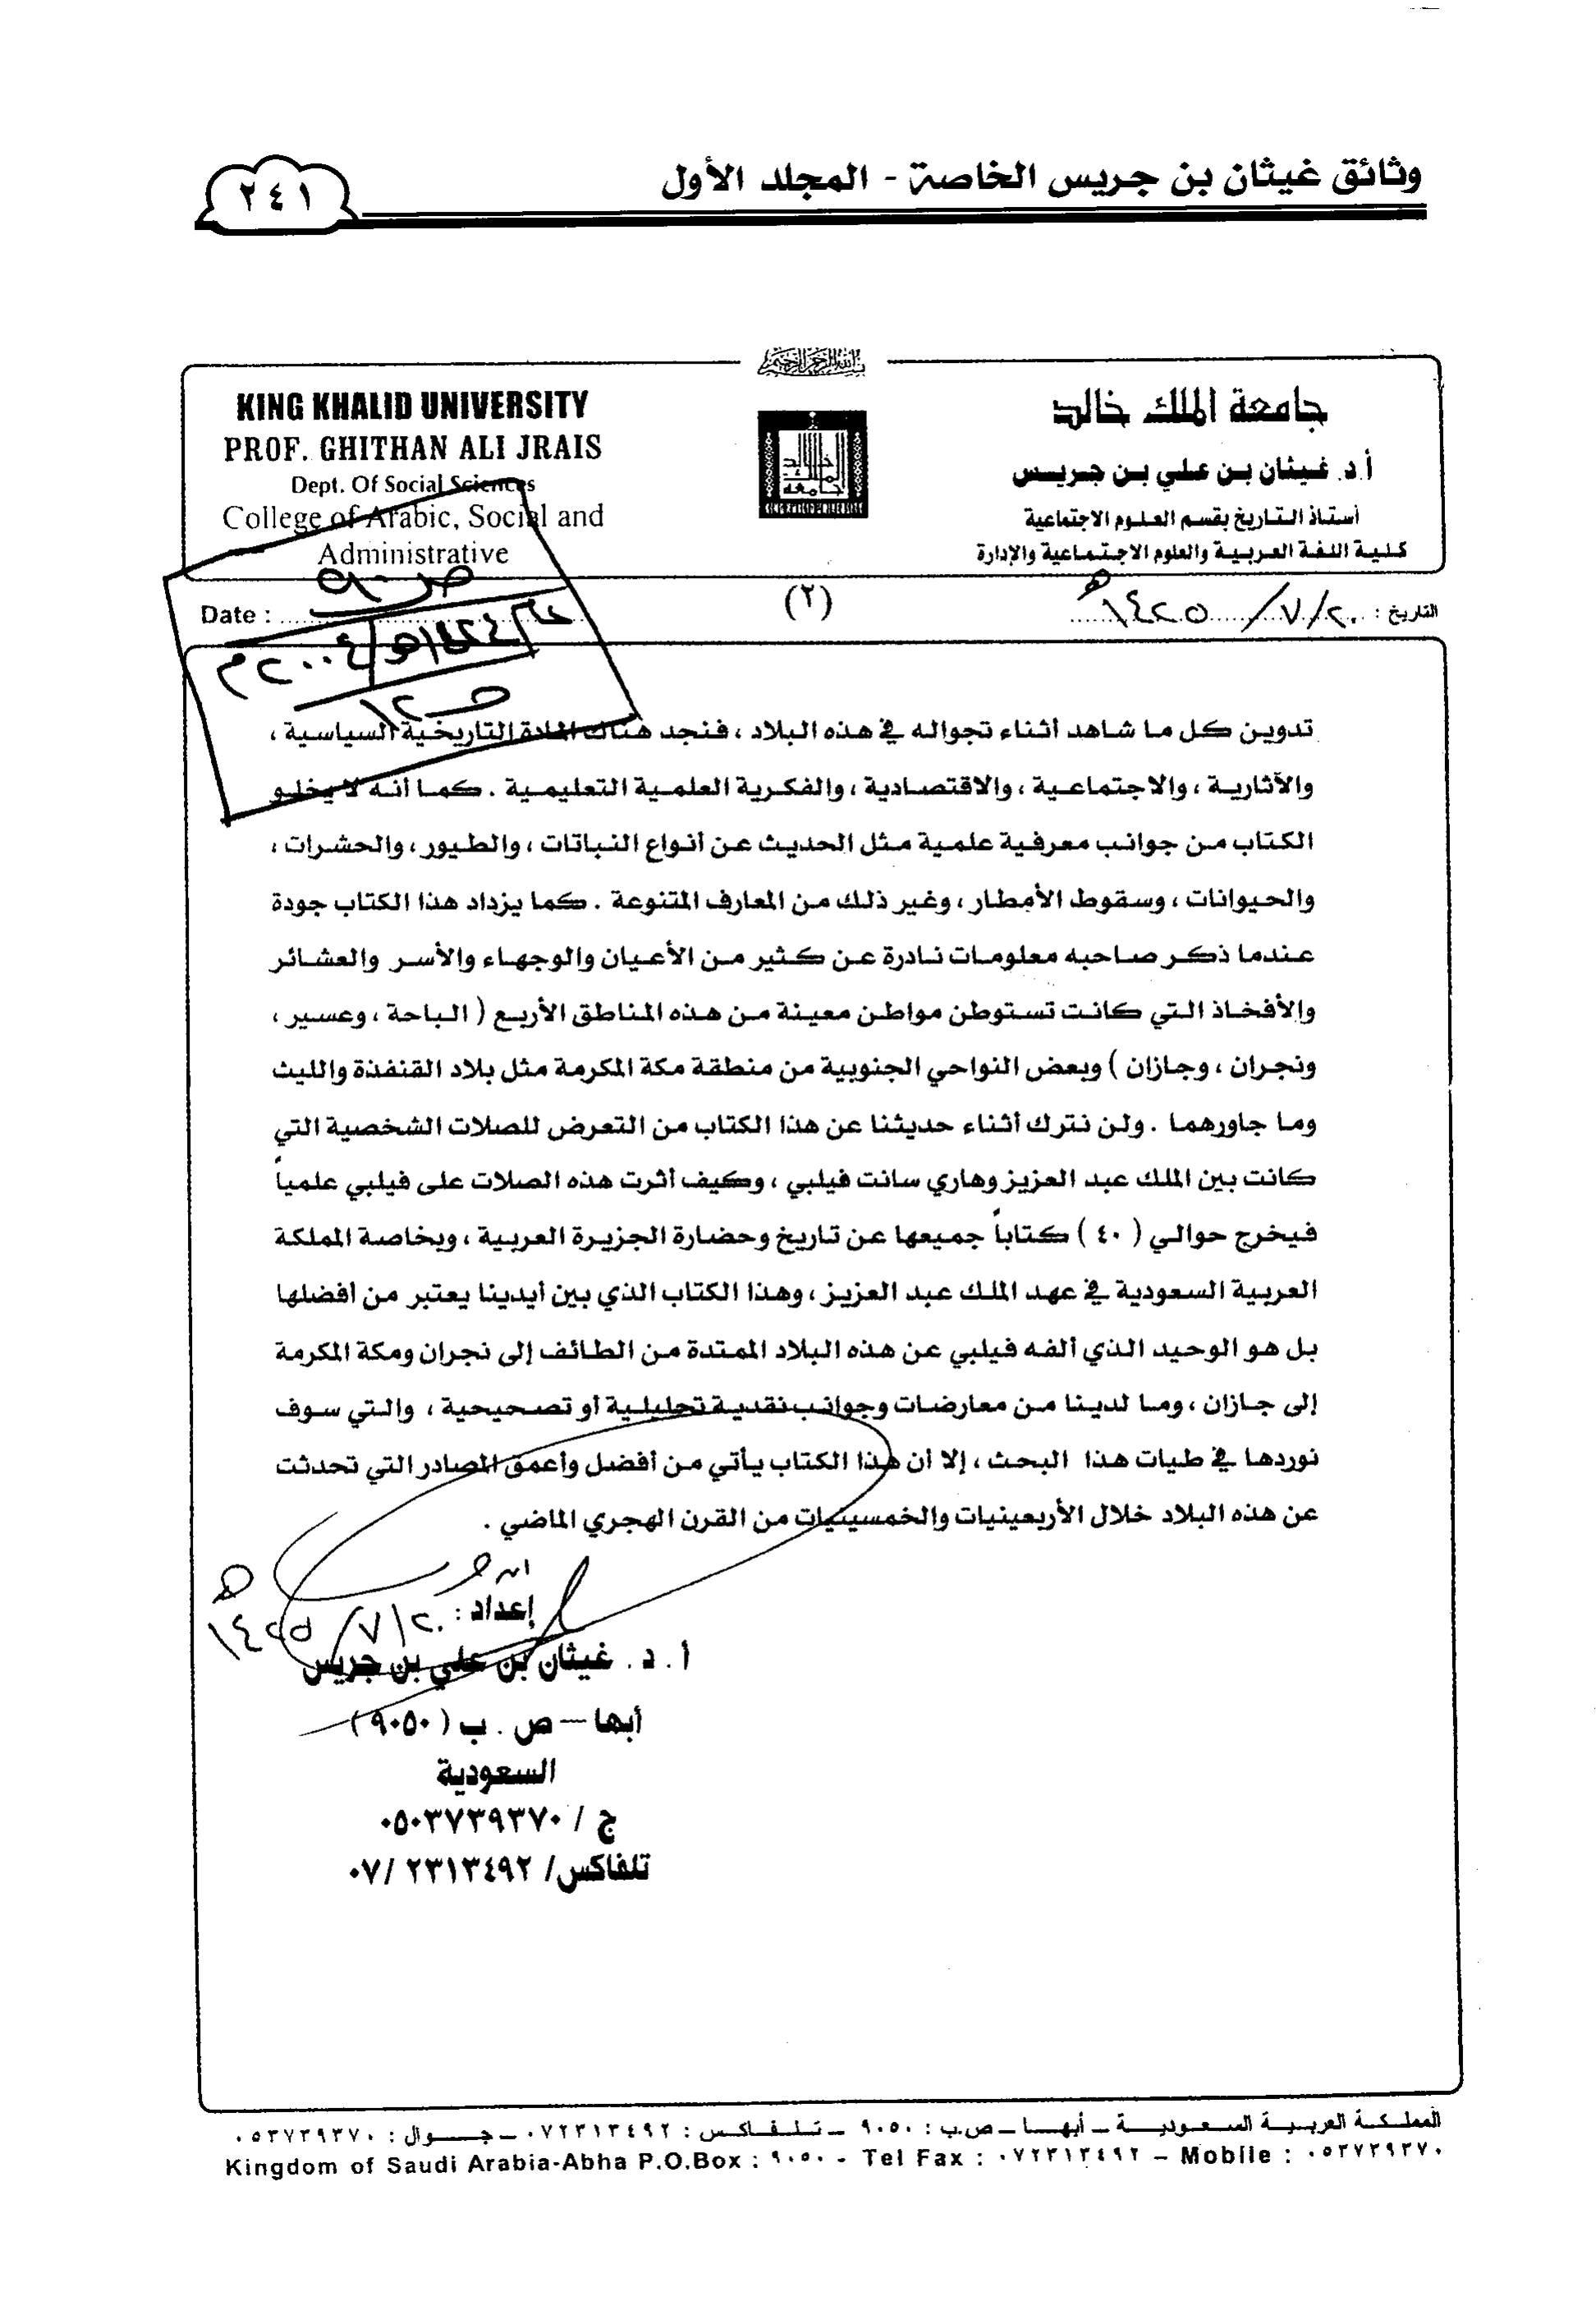 وثائق غيثان بن جريس الخاصة - المجلد الأول
٢٤١
جامعة الملك خالد
أ.د. غيثان بن علي بن جريس
أستاذ التاريخ بقسم العلوم الاجتماعية
كلية اللغة العربية والعلوم الاجتماعية والإدارة
KING KHALID UNIVERSITY
PROF. GHITHAN ALI JRAIS
Dept. Of Social Sciences
College of Arabic, Social and
Administrative
التاريخ : ٢٠/٧/١٤٢٥هـ
(٢)
Date :
ص ٩٠
١٤٢٤هـ/٢٠٠٤م
تدوين كل ما شاهد أثناء تجواله في هذه البلاد ، فنجد هناك المادة التاريخية السياسية ،
والآثارية ، والاجتماعية ، والاقتصادية ، والفكرية العلمية التعليمية . كما أنه لا يخلو
الكتاب من جوانب معرفية علمية مثل الحديث عن أنواع النباتات ، والطيور ، والحشرات ،
والحيوانات ، وسقوط الأمطار ، وغير ذلك من المعارف المتنوعة . كما يزداد هذا الكتاب جودة
عندما ذكر صاحبه معلومات نادرة عن كثير من الأعيان والوجهاء والأسر والعشائر
والأفخاذ التي كانت تستوطن مواطن معينة من هذه المناطق الأربع ( الباحة ، وعسير ،
ونجران ، وجازان ) وبعض النواحي الجنوبية من منطقة مكة المكرمة مثل بلاد القنفذة والليث
وما جاورهما . ولن نترك أثناء حديثنا عن هذا الكتاب من التعرض للصلات الشخصية التي
كانت بين الملك عبد العزيز وهاري سانت فيلبي ، وكيف أثرت هذه الصلات على فيلبي علمياً
فيخرج حوالي ( ٤٠ ) كتاباً جميعها عن تاريخ وحضارة الجزيرة العربية ، وبخاصة المملكة
العربية السعودية في عهد الملك عبد العزيز ، وهذا الكتاب الذي بين أيدينا يعتبر من أفضلها
بل هو الوحيد الذي ألفه فيلبي عن هذه البلاد الممتدة من الطائف إلى نجران ومكة المكرمة
إلى جازان ، وما لدينا من معارضات وجوانب نقدية تحليلية أو تصحيحية ، والتي سوف
نوردها في طيات هذا البحث ، إلا أن هذا الكتاب يأتي من أفضل وأعمق المصادر التي تحدثت
عن هذه البلاد خلال الأربعينيات والخمسينيات من القرن الهجري الماضي .
إعداد :
٢٠/٧/١٤٢٥هـ
أ . د . غيثان بن علي بن جريس
أبها – ص . ب ( ٩٠٥٠ )
السعودية
ج / ٠٥٠٣٧٣٩٣٧٠
تلفاكس/ ٢٣١٣٤٩٢ /٠٧
المملكة العربية السعودية – أبها – ص.ب : ٩٠٥٠ – تلفاكس : ٠٧٢٣١٣٤٩٢ – جوال : ٠٥٣٧٣٩٣٧٠
Kingdom of Saudi Arabia-Abha P.O.Box : ٩٠٥٠ - Tel Fax : ٠٧٢٣١٣٤٩٢ – Mobile : ٠٥٣٧٣٩٣٧٠